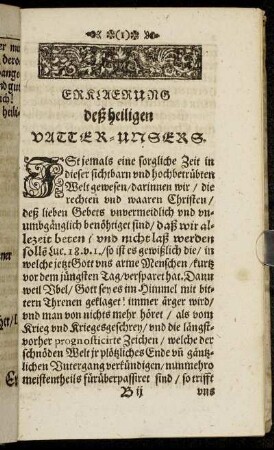 (1)
ERKLAERUNG
deß heiligen
VATTER-UNSERS.
ISt jemals eine sorgliche Zeit in
dieser sichtbarn und hochbetrübten
Welt gewesen / darinnen wir / die
rechten und waaren Christen /
deß lieben Gebets unvermeidlich und vn-
umbgänglich benöhtiget sind / daß wir al-
lezeit beten / und nicht laß werden
solls Luc. 18. v. 1. / so ist es gewißlich die / in
welche jetzt Gott vns arme Menschen / kurtz
vor dem jüngsten Tag / versparet hat. Dann
weil Vbel / Gott sey es im Himmel mit bit-
tern Threnen geklaget! immer ärger wird /
und man von nichts mehr höret / als vom
Krieg vnd Kriegesgeschrey / vnd die längst-
vorher prognosticirte Zeichen / welche der
schnöden Welt jr plötzliches Ende vñ gäntz-
lichen Vntergang verkündigen / nunmehro
meistentheils fürüber passiret sind / so trifft
B ij vns